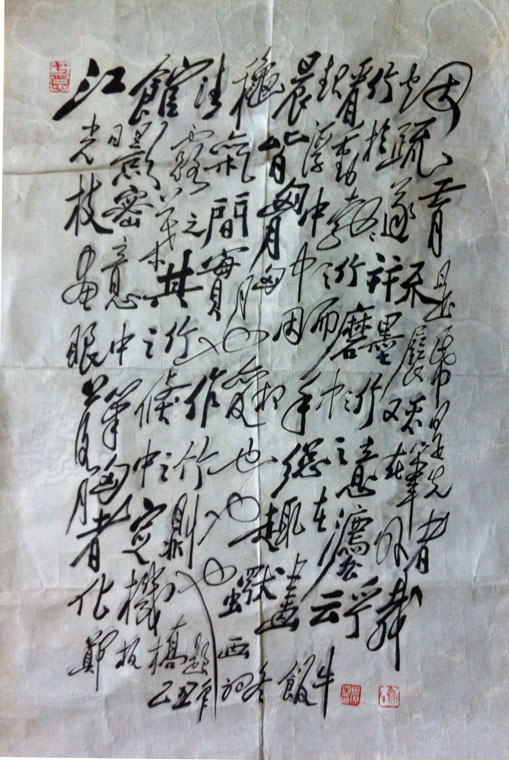 江館清穐晨起看竹烟
光日影露氣皆浮動於疏
枝密葉之間胸中勃勃遂有
畫意其實胸中之竹並不是
眼中之竹也因而磨墨展紙
落筆倏作變相手中之竹又不是
胸中之竹也總之意在筆先
者定則也趣在法外者
化機也獨畫云乎哉
鄭板橋題画
乙丑年冬